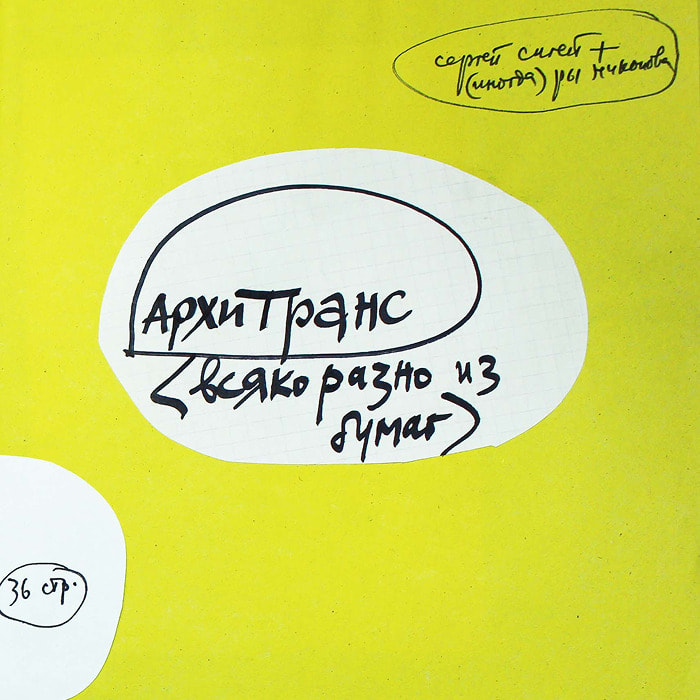 сергей сигей +
(иногда) ры никонова
архитранс
(всякоразно из
бумаг)
36 стр.